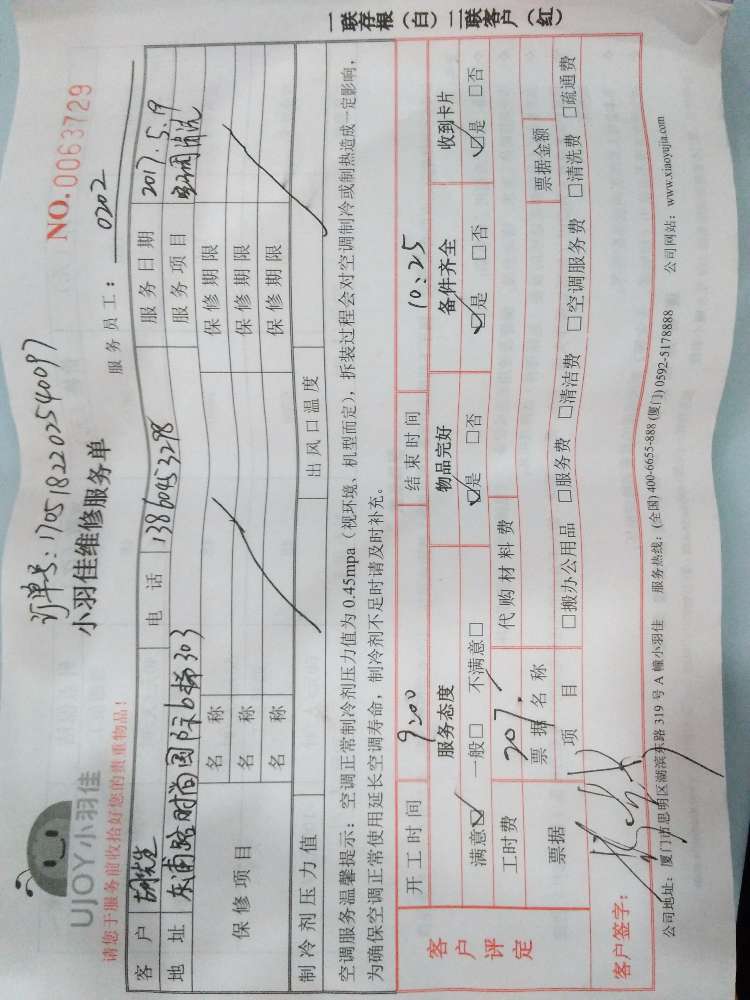 一联存根（白）二联客户（红）
UJOY小羽佳
订单号：170518220254 0097
NO.0063729
小羽佳维修服务单
请您于服务前收拾好您的贵重物品！
服务员工： 0202
客户 胡先生 电话 13860453298 服务日期 2017.5.19
地址 东浦路时尚国际6梯303 服务项目 空调清洗
保修项目 名称 保修期限
名称 保修期限
名称 保修期限
制冷剂压力值 出风口温度
空调服务温馨提示：空调正常制冷剂压力值为0.45mpa（视环境、机型而定），拆装过程会对空调制冷或制热造成一定影响，
为确保空调正常使用延长空调寿命，制冷剂不足时请及时补充。
客户评定 开工时间 9:00 结束时间 10:25
服务态度 物品完好 备件齐全 收到卡片
满意☑ 一般□ 不满意□ ☑是 □否 ☑是 □否 ☑是 □否
工时费 207. 代购材料费
票据 票据名称 票据金额
项目 □搬办公用品 □服务费 □清洁费 □空调服务费 □清洗费 □疏通费
客户签字：
公司地址：厦门市思明区湖滨东路319号A幢小羽佳 服务热线：(全国) 400-6655-888 (厦门) 0592-5178888 公司网站：www.xiaoyujia.com